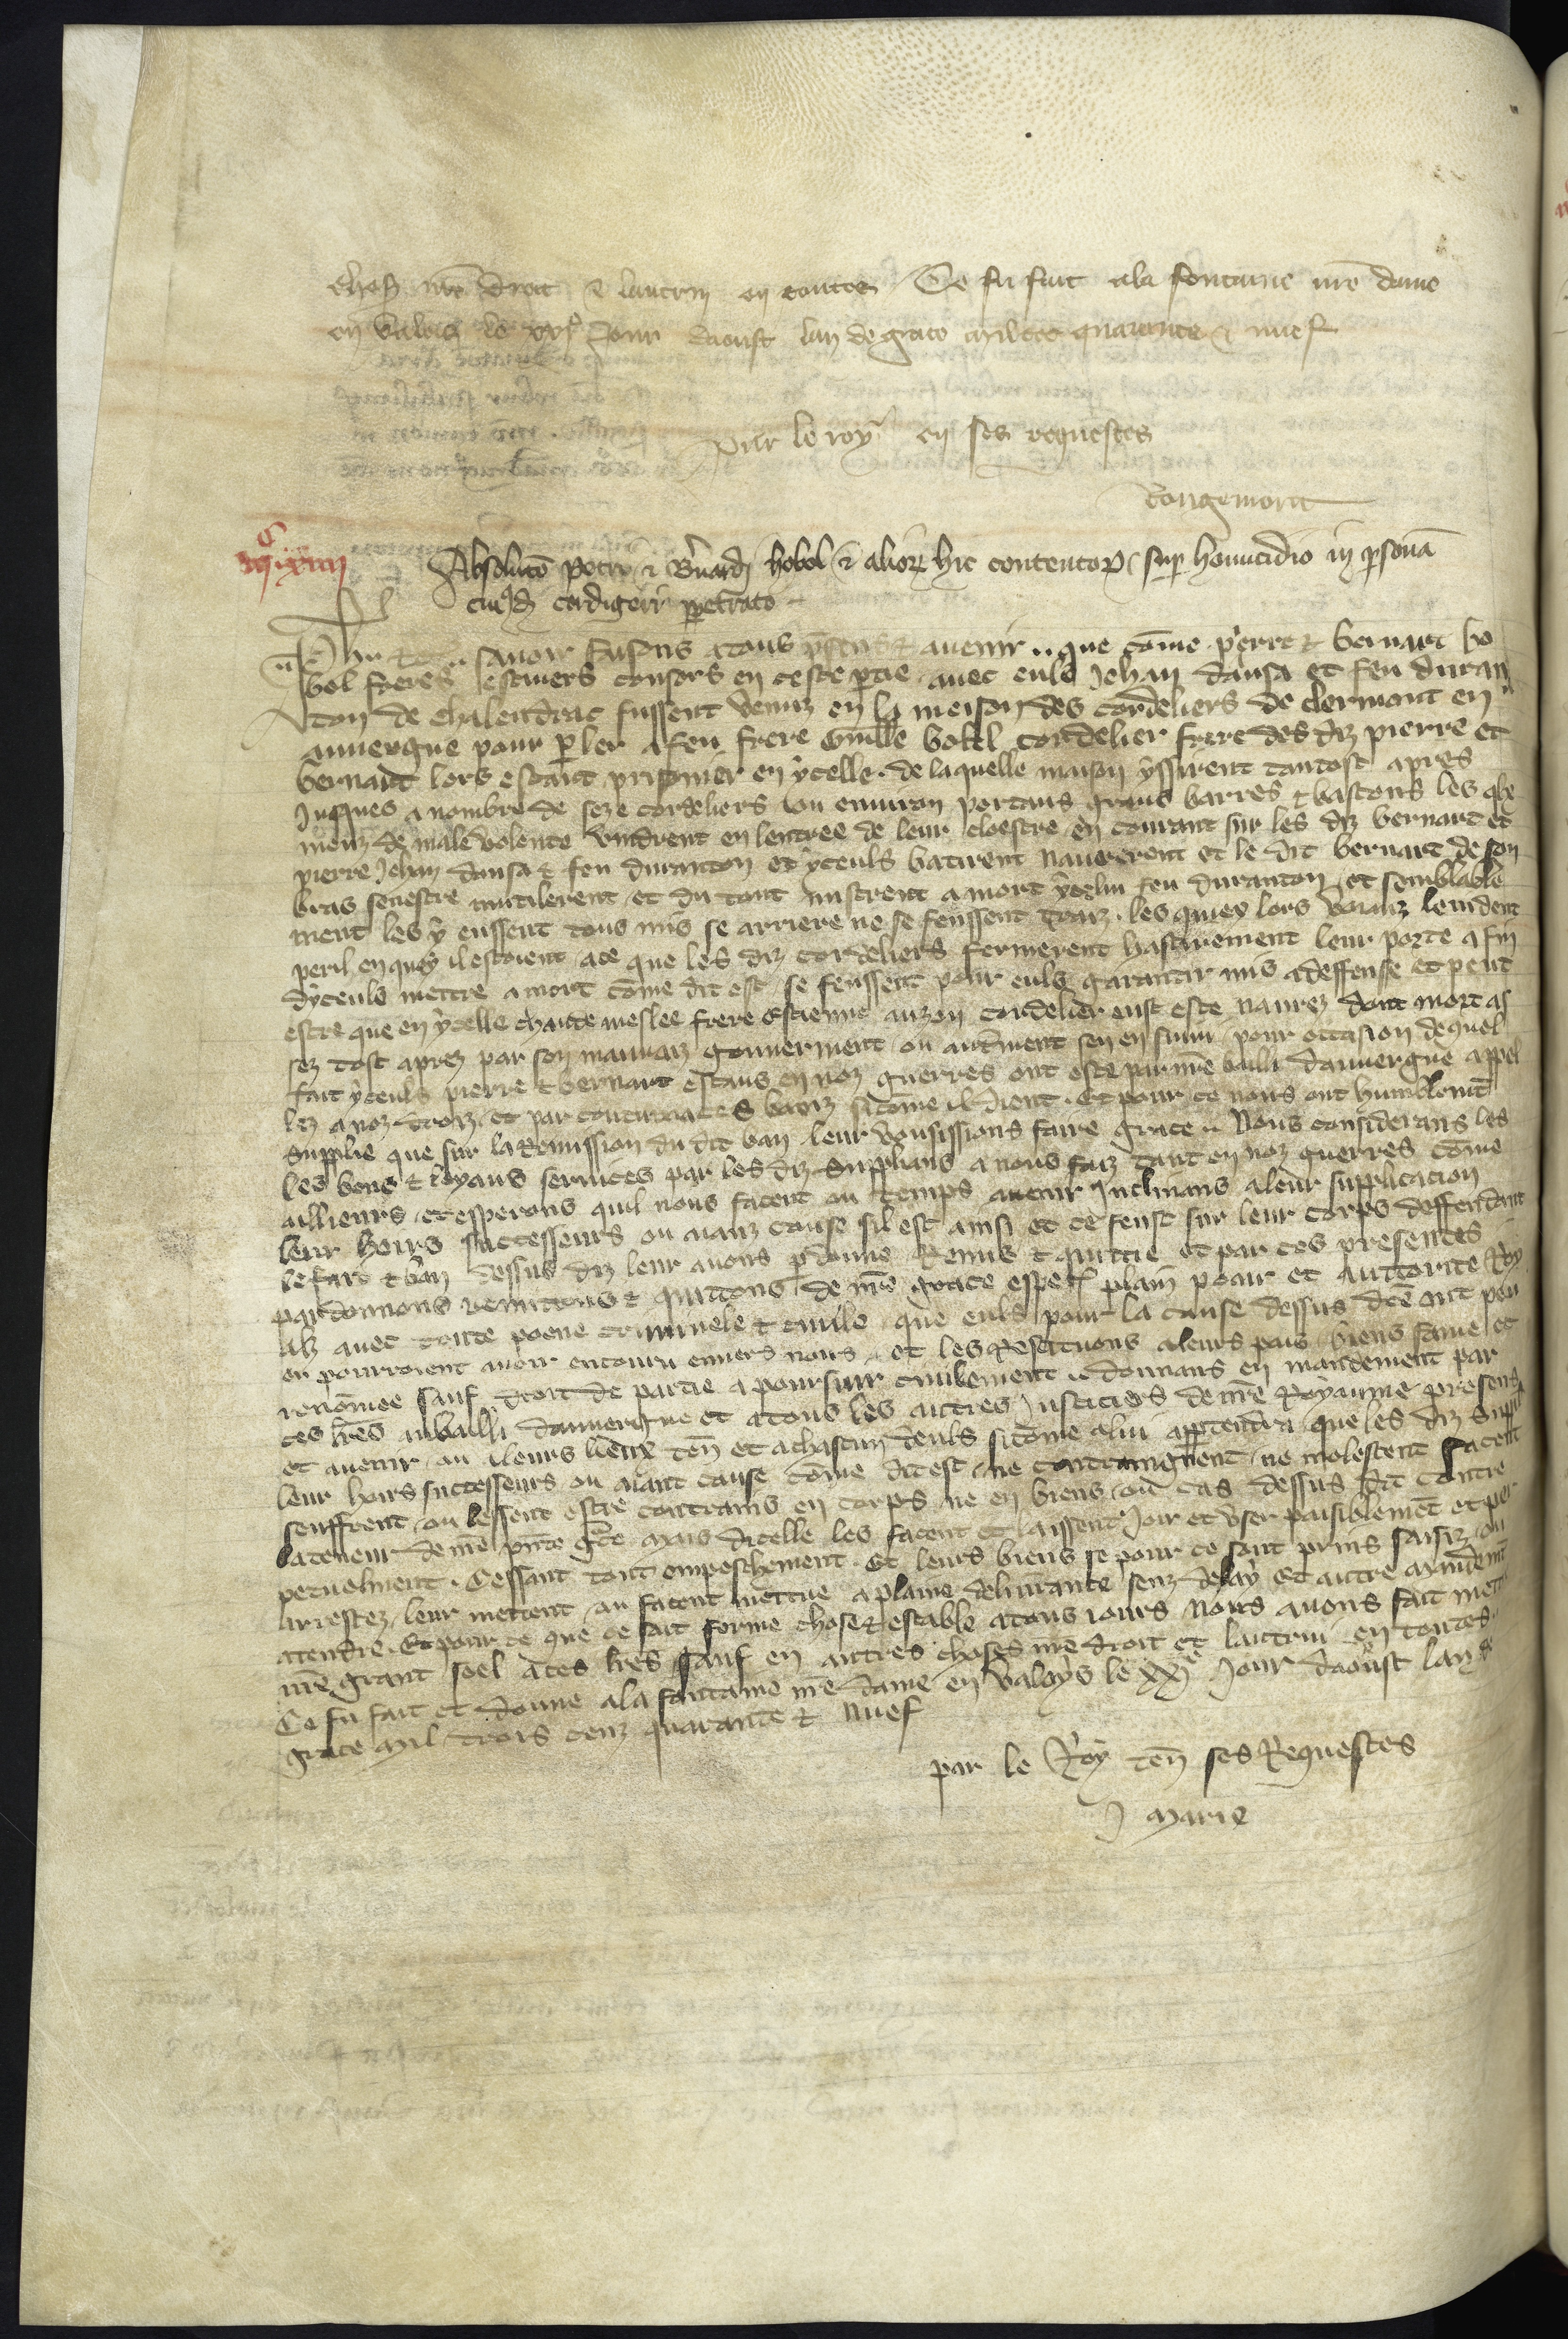 choses nre droit & lautrui en toutes Ce fu fait ala fontaine nre dame
en Valois le xxi Jour daoust lan de grace mil ccc quarante & nuef
Par le roy en ses requestes
Rougemont
Absoluco Petri & Bernardi bobol & alior hic contentor sup homicidio in psona
cuiusd cordigeri ppetrato
Ph &c savoir faisons a touz presens & avenir que come pierre & bernart bo
bol freres consors en ceste ptie avec euls Jehan dausa et feu duran
ton de chalendrac fussent venuz en la meison des cordeliers de clermont en
auvergne pour pler a feu frere Guille bobol cordelier frere des diz pierre et
bernart lors estant prisonier en ycelle de laquelle maison yssirent tantost apres
Jusques a nombre de seze cordeliers ou environ portans grans barres & bastons les qle
meuz de male volente vindrent en lentree de leur cloestre en courant sur les diz bernart et
pierre Jehan dausa & feu duranton et yceuls batirent navrerent et le dit bernart de son
bras senestre mutilerent et du tout mistrent a mort ycelui feu duranton et semblable
ment les y eussent tous mis se arriere ne se feussent traiz les quiex lors levident
peril en quoy il estoient ace que les diz cordeliers fermerent hastivement leur porte afin
dyceuls mettre a mort come dit est se feussent pour euls garantir mis a deffense et peut
estre que en ycelle chaude meslee frere Estienne auzon cordelier eust este navrez dont mort as
sez tost aprez par son mauvaiz gouverment ou autrment sen en suivi pour occasion dequel
fait yceuls pierre & bernart estans en noz guerres ont este par nre bailli dauvergne appel
lez a noz droiz et par contumaces baniz sicome il dient Et pour ce nous ont humblemt
supplie que sur la Remission du dit ban leur vousissions faire grace Nous considerans les
les bons & loyaus services par les diz supplians a nous faiz tant en noz guerres come
aillieurs et esperons quil nous facent ou temps avenir Inclinans a leur supplicacion
leur hoirs successeurs ou aianz cause sil est ainsi et ce feust sur leur corps deffendant
le fait & ban dessus diz leur avons pdonne Remis & quittie et par ces presentes
pardonnons remittons & quittons de nre grace especi plain poair et auttorite Roy
alz avec toute poene criminele & civile que euls pour la cause dessus dce ont peu
ou pourroient avoir encouru envers nous et les Restituons a leurs pais biens fame et
renomee sauf droit de partie a poursuir civilement donnans en mandement par
ces lres au bailli dauvergne et a tous les autres Justiciers de nre Royaume presens
et avenir ou a leurs lieux ten et a chascun deuls sicome a lui apptendra que les diz suppl
leur hoirs successeurs ou aiant cause come dit est ne contraingnent ne molestent facent
seuffrent ou lessent estre contrains en corps ne en biens ou cas dessus dit contre
la teneur de nre pnte gce mais dicelle les facent et laissent Joir et user paisiblemet et per
petuelment Cessant tout empeschement Et leurs biens se pour ce sont prins saisiz ou
arrestez leur mettent ou facent mettre a plaine delivrance senz delay Et autre mandemt
atendre Et pour ce que ce soit ferme chose & estable a tous jours Nous avons fait mett
nre grant seel a ces lres Sauf en autres choses nre droit et lautrui en toutes
Ce fu fait et donne ala fontaine nre dame en valoys le xxie Jour daoust lan de
grace mil trois cenz quarante & nuef
par le Roy en ses Requestes
J Marie